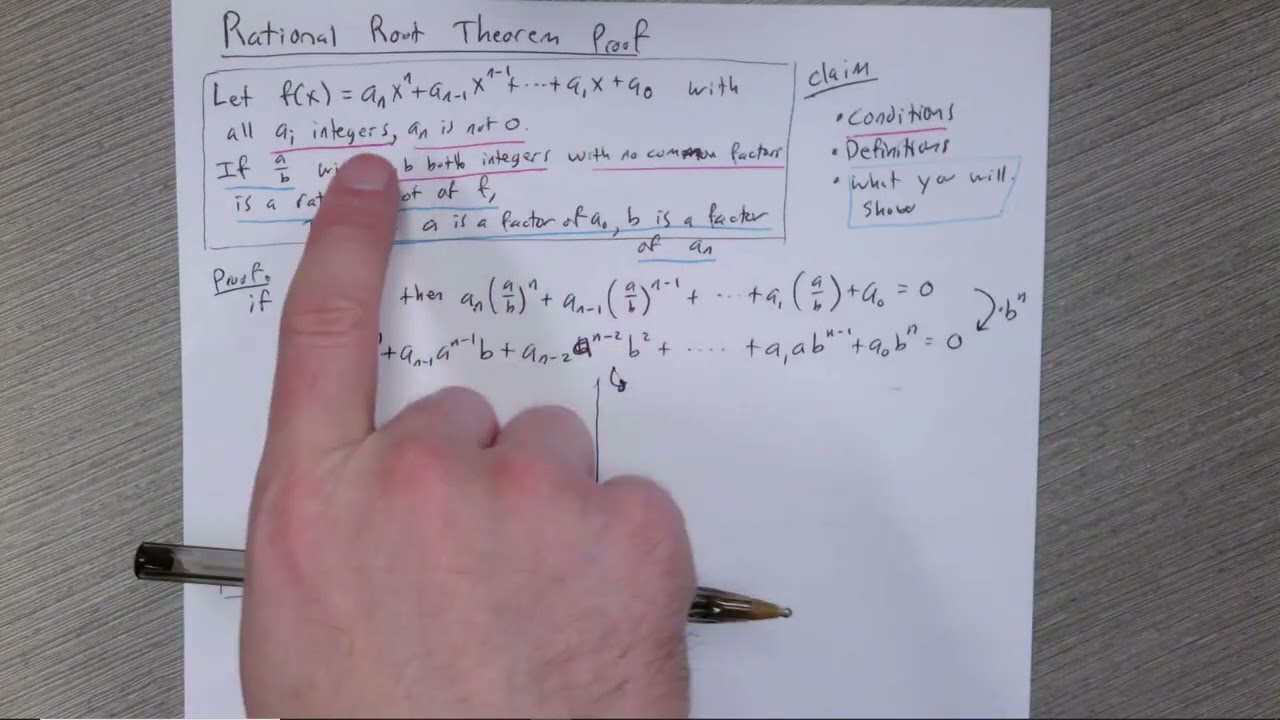 Rational Root Theorem Proof
Let f(x) = aₙxⁿ + aₙ₋₁xⁿ⁻¹ + ⋯ + a₁x + a₀ with
all aᵢ integers, aₙ is not 0.
If a/b b both integers with no common factors
is a of f,
a is a factor of a₀, b is a factor
of aₙ
claim
• Conditions
• Definitions
• What you will
show
Proof.
if then aₙ(a/b)ⁿ + aₙ₋₁(a/b)ⁿ⁻¹ + ⋯ + a₁(a/b) + a₀ = 0
·bⁿ
+ aₙ₋₁aⁿ⁻¹b + aₙ₋₂aⁿ⁻²b² + ⋯ + a₁abⁿ⁻¹ + a₀bⁿ = 0